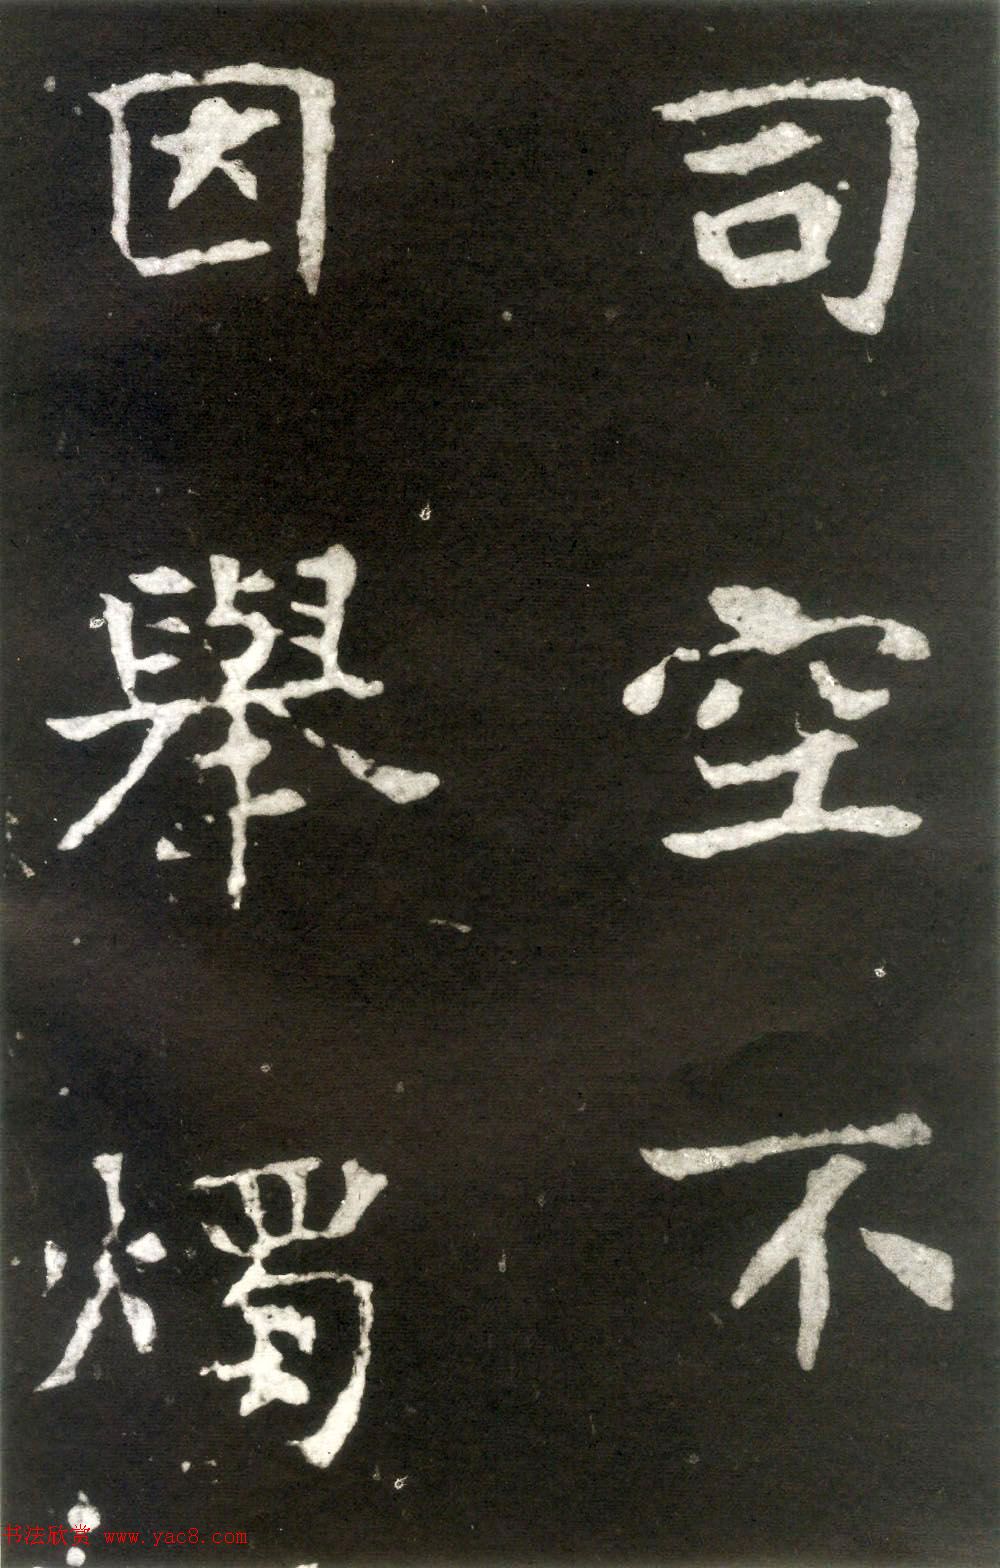 司空不
因舉燭
书法欣赏 www.yac8.com